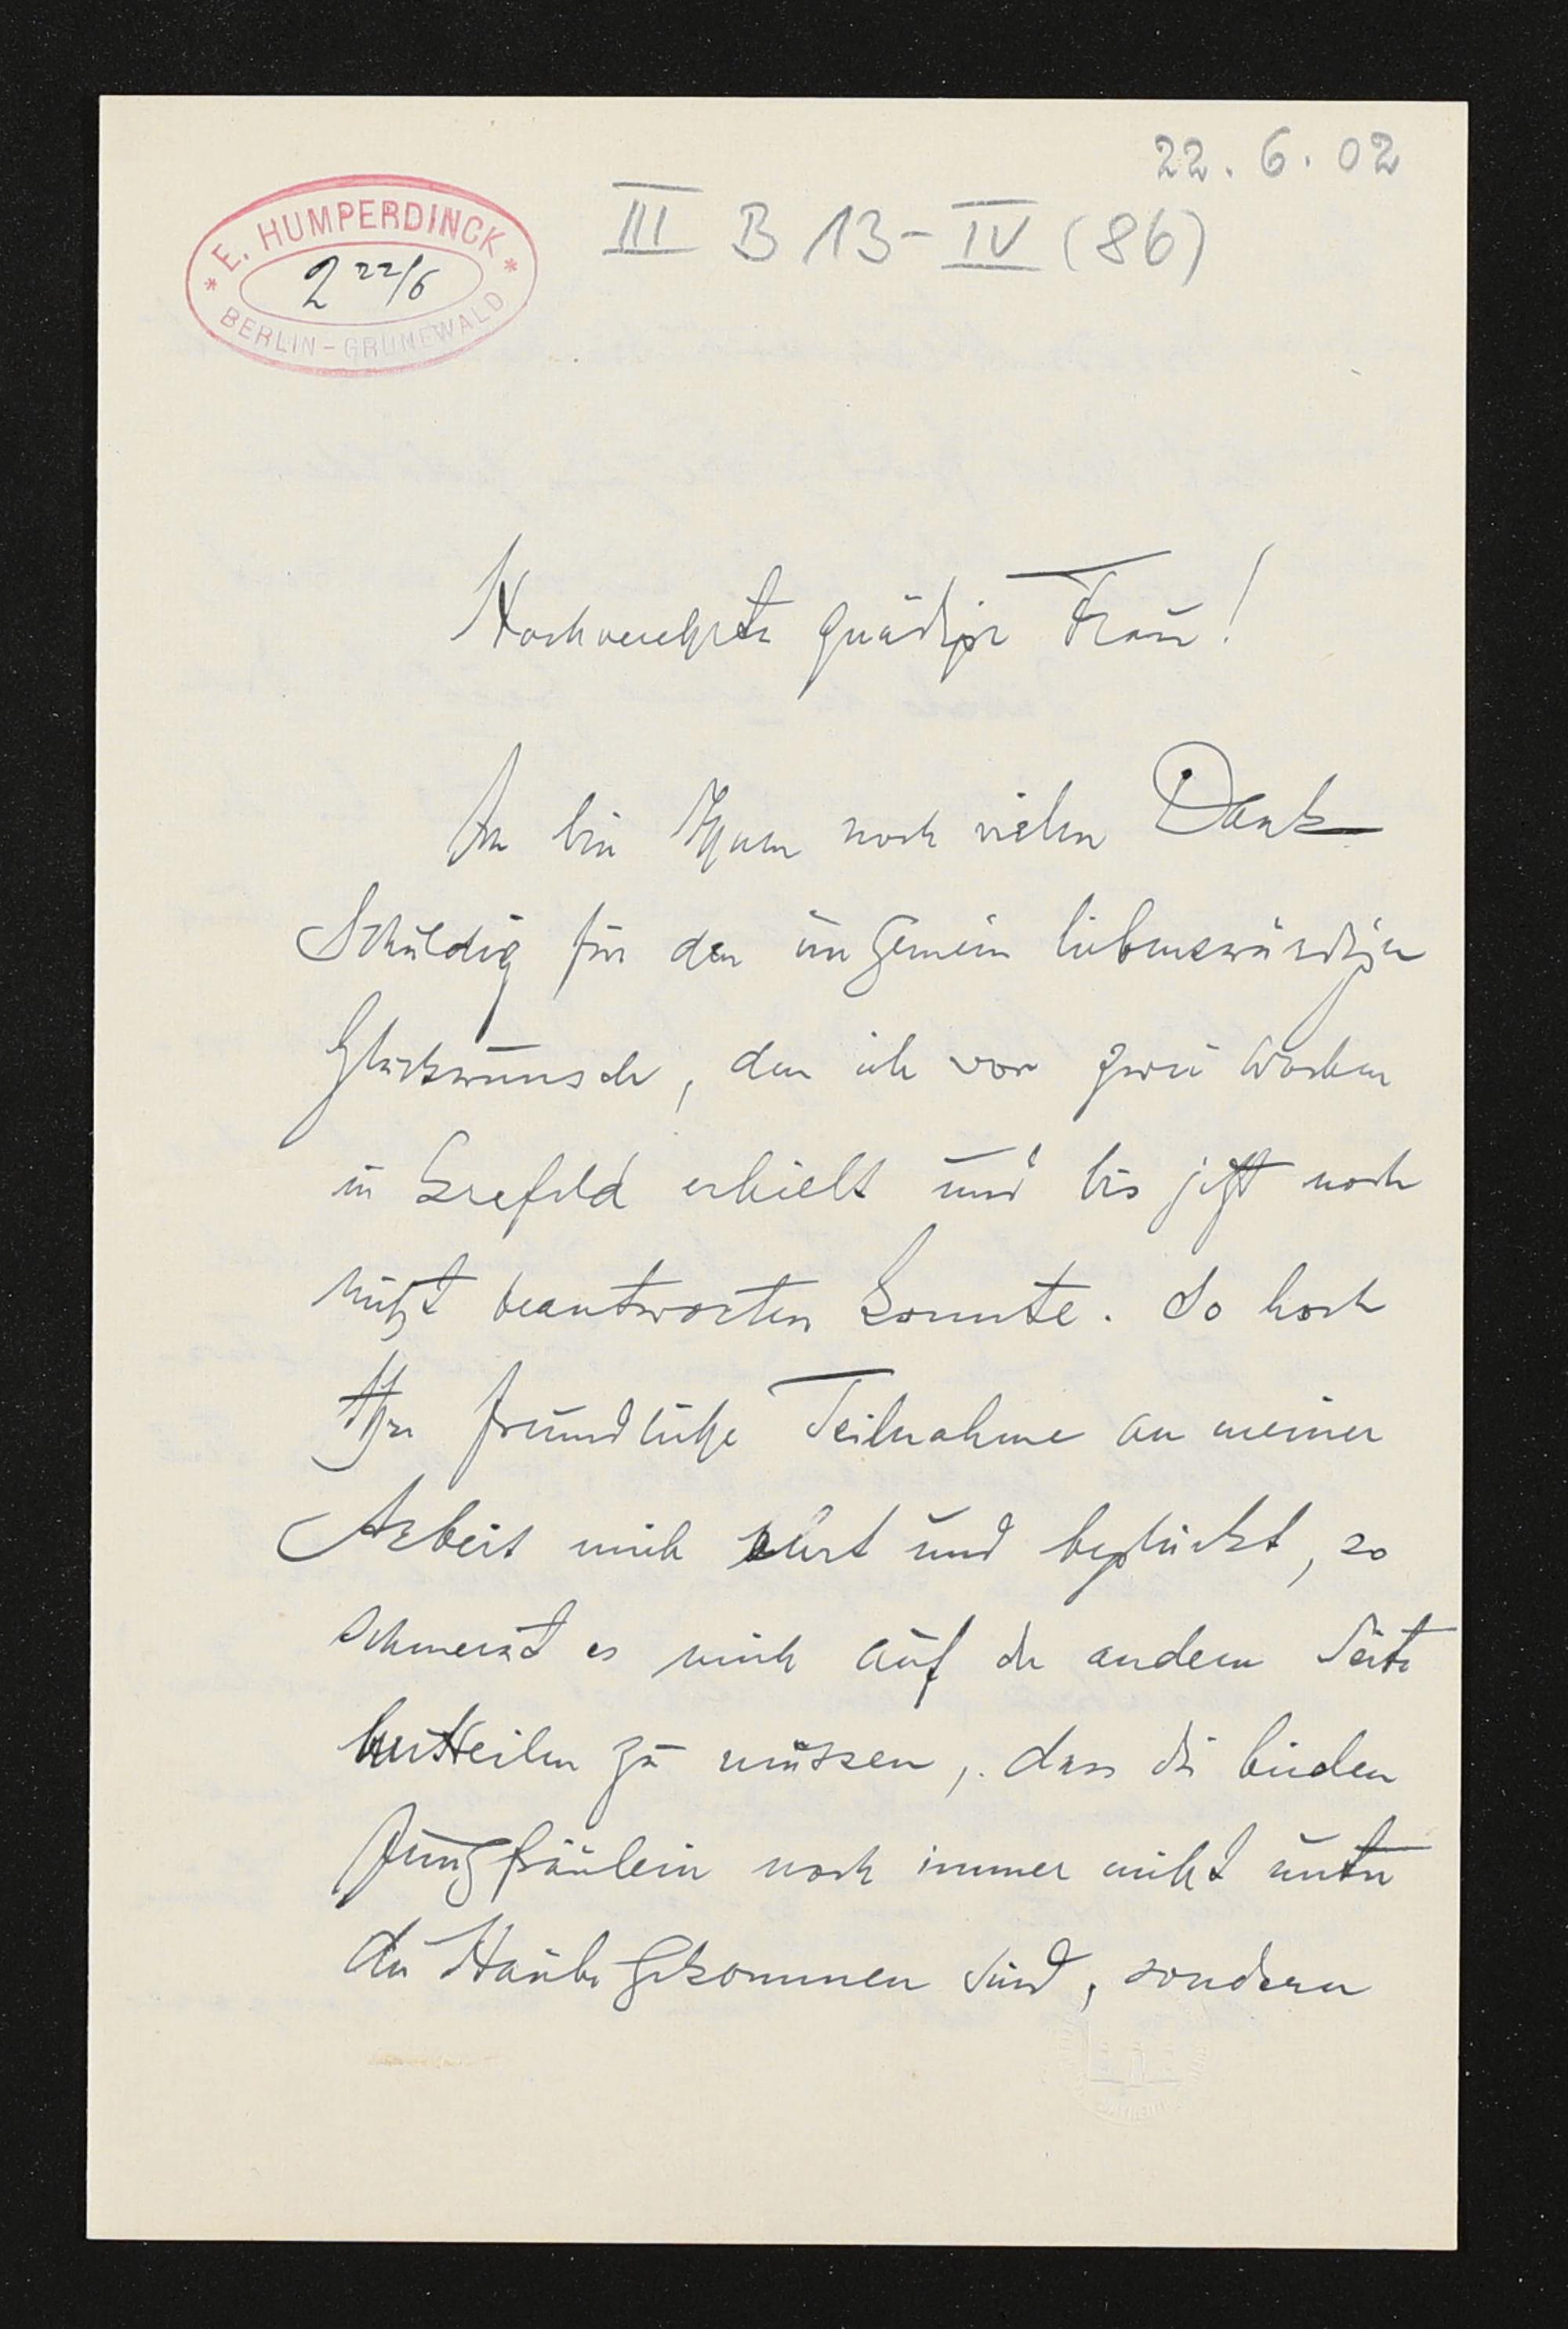 22. 6. 02
III B 13-IV (86)
* E. HUMPERDINCK *
2 22/6
BERLIN-GRUNEWALD
Hochverehrte gnädige Frau!
Ich bin Ihnen noch vielen Dank
Schuldig für den ungemein liebenswürdigen
Glückwunsch, den ich vor zwei Wochen
in Crefeld erhielt und bis jetzt noch
nicht beantworten konnte. So hoch
Ihre freundliche Teilnahme an meiner
Arbeit mich ehrt und beglückt, so
schmerzt es mich auf der andern Seite
mitteilen zu müssen, dass die beiden
Jungfräulein noch immer nicht unter
die Haube gekommen sind, sondern